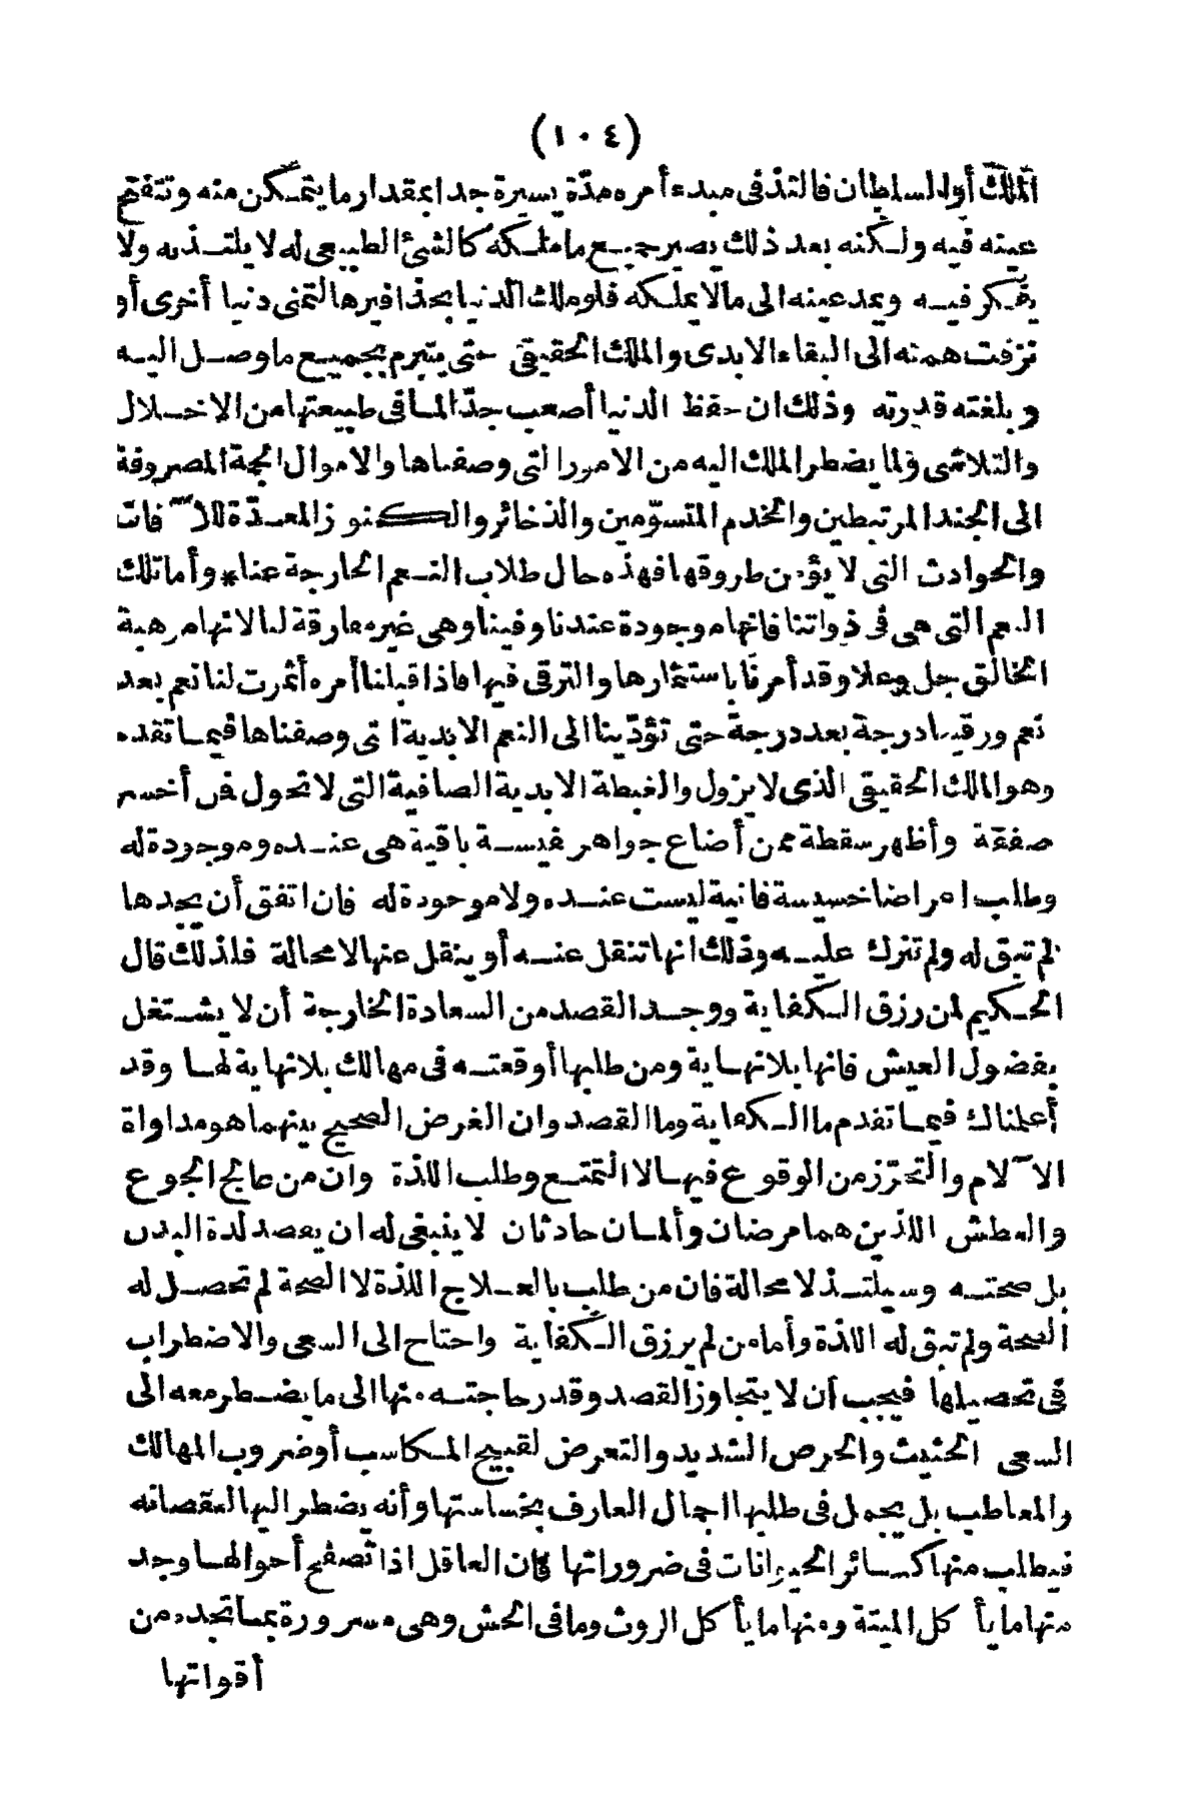 (١٠٤)
الملك أو السلطان فالتذ فى مبدء أمره مدّة يسيرة جدا بمقدار ما يتمكن منه وتتفتح
عينه فيه ولكنه بعد ذلك يصير جميع ما ملكه كالشئ الطبيعى له لا يلتذبه ولا
يفكر فيه ويمد عينه الى مالا يملكه فلو ملك الدنيا بحذافيرها لتمنى دنيا أخرى أو
ترقت همته الى البقاء الابدى والملك الحقيقى حتى يتبرم بجميع ما وصل اليه
وبلغته قدرته وذلك ان حفظ الدنيا أصعب جدّا لما فى طبيعتها من الاخلال
والتلاشى ولما يضطر الملك اليه من الامور التى وصفناها والاموال الجمة المصروفة
الى الجند المرتبطين والخدم المتسوّمين والذخائر والكنوز المعدّة للآ فات
والحوادث التى لا يؤمن طروقها فهذه حال طلاب النعم الخارجة عنا * وأما تلك
النعم التى هى فى ذواتنا فانها موجودة عندنا وفينا وهى غير مفارقة لنا لانها موهبة
الخالق جل وعلا وقد أمرنا باستثمارها والترقى فيها فاذا قبلنا أمره أثمرت لنا نعم بعد
نعم ورقينا درجة بعد درجة حتى تؤدّينا الى النعم الابدية التى وصفناها فيما تقدم
وهو الملك الحقيقى الذى لا يزول والغبطة الابدية الصافية التى لا تحول فمن أخسر
صفقة وأظهر سقطة ممن أضاع جواهر نفيسة باقية هى عنده وموجودة له
وطلب اعراضا خسيسة فانية ليست عنده ولا موجودة له فان اتفق أن يجدها
لم تبق له ولم تترك عليه وذلك انها تنقل عنه أو ينقل عنها لا محالة فلذلك قال
الحكيم لمن رزق الكفاية ووجد القصد من السعادة الخارجة أن لا يشتغل
بفضول العيش فانها بلا نهاية ومن طلبها أوقعته فى مهالك بلا نهاية لها وقد
أعلمناك فيما تقدم ما الكفاية وما القصد وان الغرض الصحيح بينهما هو مداواة
الآ لام والتحرّز من الوقوع فيها لا التمتع وطلب اللذة وان من عالج الجوع
والعطش اللذين هما مرضان وألمان حادثان لا ينبغى له ان يقصد لذة البدن
بل صحته وسيلتذ لا محالة فان من طلب بالعلاج اللذة لا الصحة لم تحصل له
الصحة ولم تبق له اللذة وأما من لم يرزق الكفاية واحتاج الى السعى والاضطراب
فى تحصيلها فيجب أن لا يتجاوز القصد وقدر حاجته منها الى ما يضطر معه الى
السعى الحثيث والحرص الشديد والتعرض لقبيح المكاسب أو ضروب المهالك
والمعاطب بل يجمل فى طلبها اجمال العارف بخساستها وأنه يضطر اليها لنقصانه
فيطلب منها كسائر الحيوانات فى ضروراتها فان العاقل اذا تصفح أحوالها وجد
منها ما يأ كل الميتة ومنها ما يأ كل الروث وما فى الحش وهى مسرورة بما تجده من
أقواتها